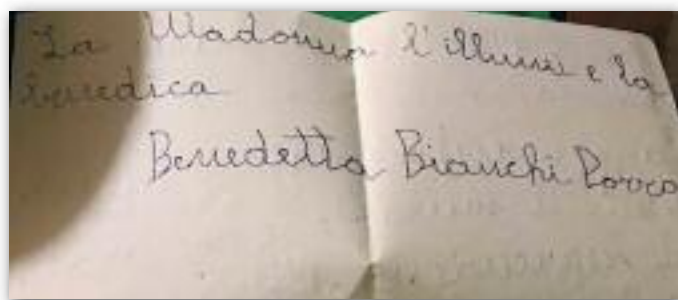 La Madonna l'illumini e la
benedica
Benedetta Bianchi Porro